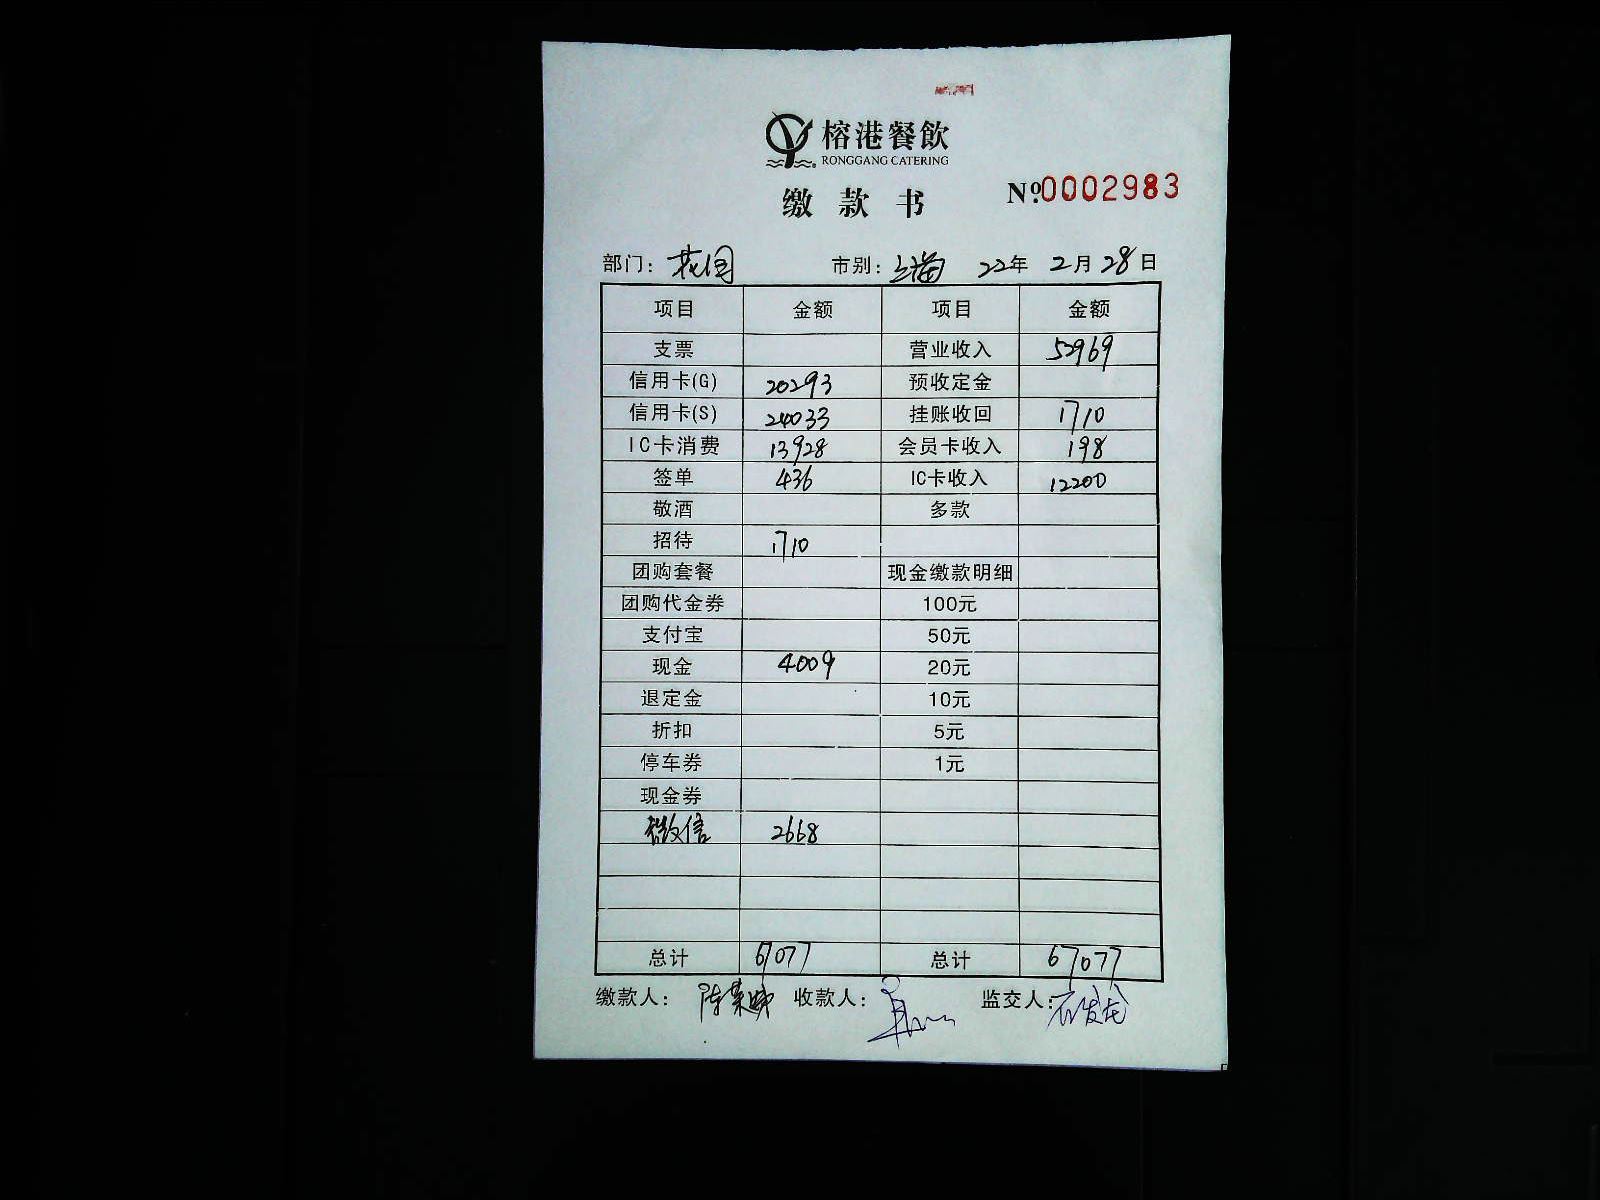 榕港餐飲
RONGGANG CATERING
缴款书
№:0002983
部门：花园 市别：上海 22年 2月 28日
项目 金额 项目 金额
支票 营业收入 52969
信用卡(G) 20293 预收定金
信用卡(S) 24033 挂账收回 1710
IC卡消费 13928 会员卡收入 198
签单 436 IC卡收入 12200
敬酒 多款
招待 1710
团购套餐 现金缴款明细
团购代金券 100元
支付宝 50元
现金 4009 20元
退定金 10元
折扣 5元
停车券 1元
现金券
微信 2668
总计 67077 总计 67077
缴款人： 收款人： 监交人：